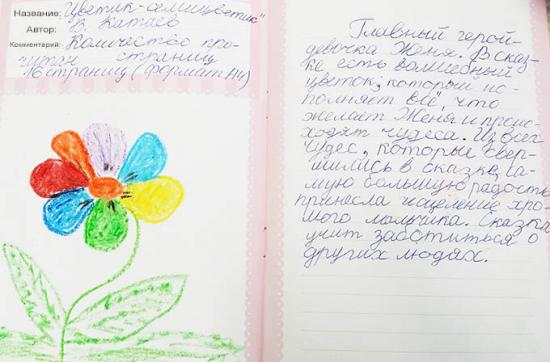 Название: "Цветик-семицветик"
Автор: В. Катаев
Комментарий: Количество про-
читан страниц
16 страниц (формат А4)
Главный герой -
девочка Женя. В сказ-
ке есть волшебный
цветок, который ис-
полняет всё, что
желает Женя и проис-
ходят чудеса. Из всех
чудес, которые свер-
шились в сказке, са-
мую большую радость
принесла исцеление хро-
мого мальчика. Сказка
учит заботиться о
других людях.